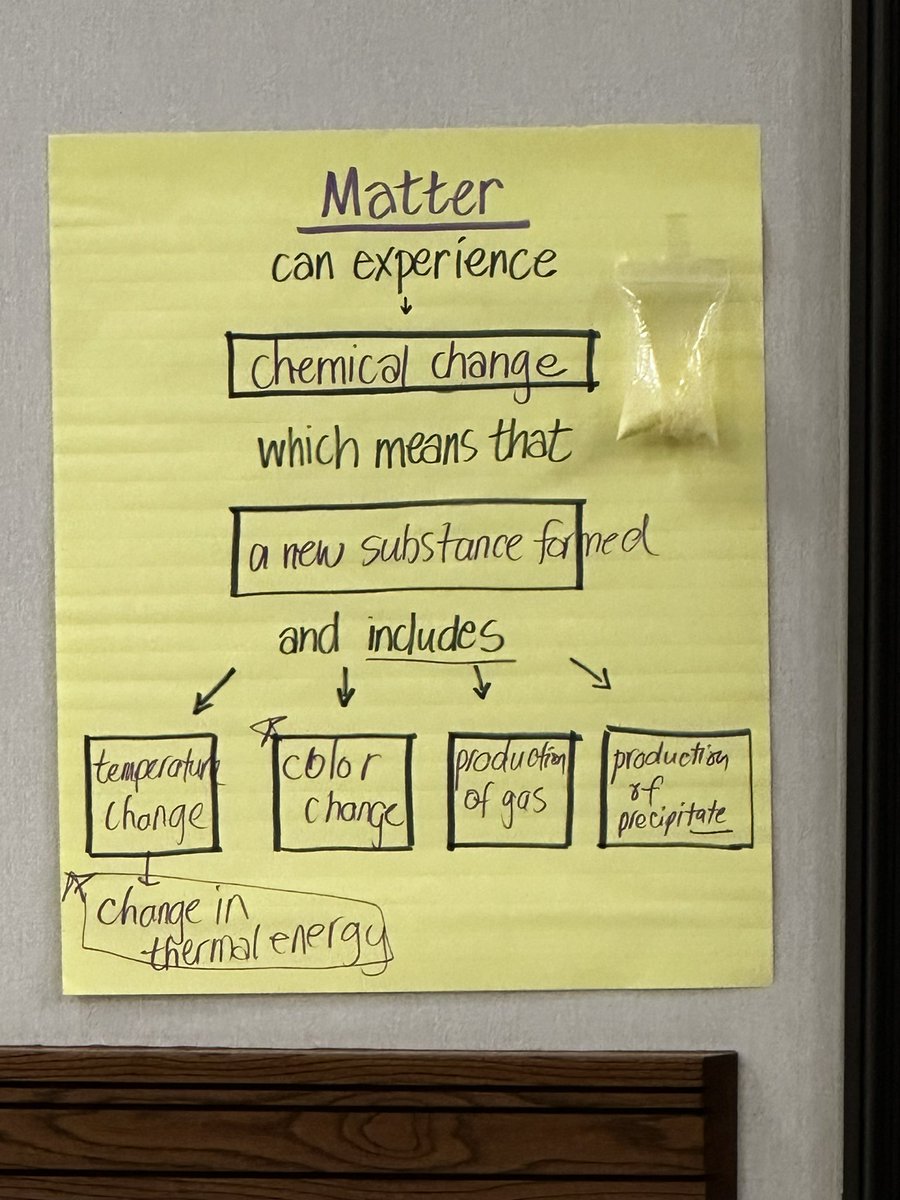 Matter
can experience
chemical change
which means that
a new substance formed
and includes
temperature
change
color
change
production
of gas
production
of
precipitate
change in
thermal energy